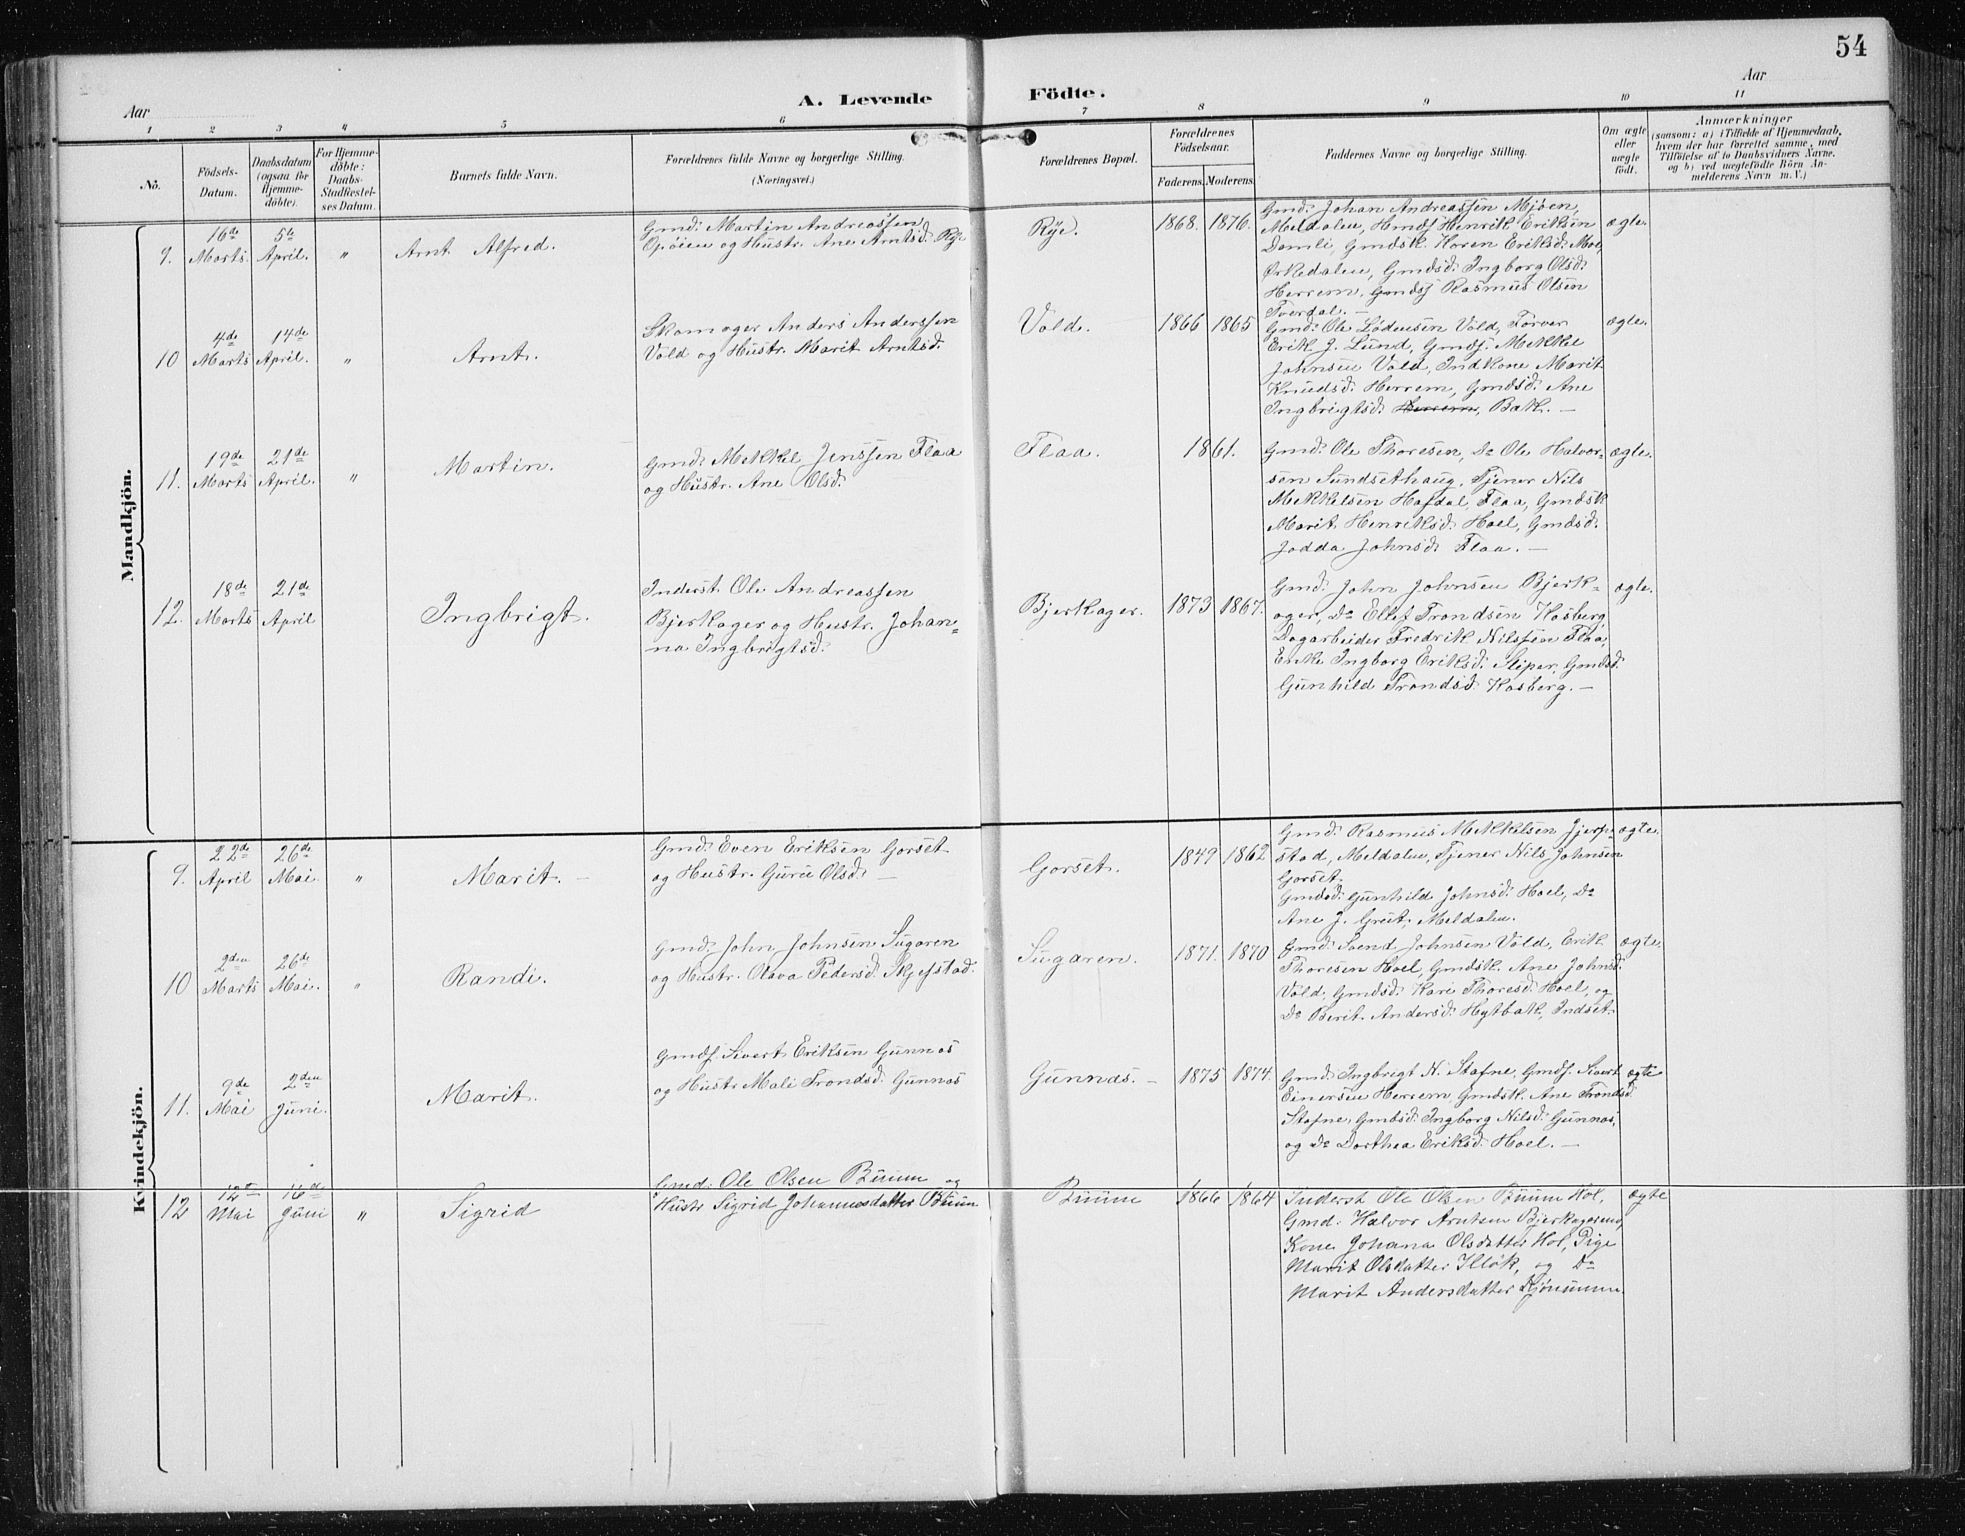 54
Aar
A. Levende
Födte.
Aar
1 2 3 4 5 6 7 8 9 10 11
No.
Födsels-
Datum.
Daabsdatum
(ogsaa for
Hjemme-
döbte).
For Hjemme-
döbte:
Daabs-
Stadfæstel-
ses Datum.
Barnets fulde Navn.
Forældrenes fulde Navne og borgerlige Stilling.
(Næringsvei.)
Forældrenes Bopæl.
Forældrenes
Födselsaar.
Faderens. Moderens.
Faddernes Navne og borgerlige Stilling.
Om ægte
eller
uægte
födt.
Anmærkninger
(saasom: a) i Tilfælde af Hjemmedaab,
hvem der har forrettet samme, med
Tilföielse af to Daabsvidners Navne.
og b) ved uægtefödte Börn An-
melderens Navn m. V.)
Mandkjön.
9. 16de Marts. 5te April. " Arnt Alfred.
Gmd. Martin Andreassen
Opöien og Hustr. Ane Arntsd. Rye
Rye. 1868. 1876.
Gmd. Johan Andreassen Mjöen,
Meldalen, Gmdsf Henrik Eriksen
Damli, Gmdsk. Karen Eriksd. Moe,
Ørkedalen, Gmdsd. Ingborg Olsd.
Herrem, Gmdsf Rasmus Olsen
Tverdal. —
ægte.
10 4de Marts 14de April. " Arnt.
Skomager Anders Anderssen
Vold og Hustr. Marit Arntsd.
Vold. 1866 1865
Gmd. Ole Lödensen Vold, Farver
Erik J. Lund, Gmdsf. Mekkel
Johnsen Vold, Indkone Marit
Knudsd. Herrem, Gmdsd. Ane
Ingbrigtsd. Herrem, Bak. —
ægte.
11. 19de Marts 21de April. " Martin.
Gmd. Mekkel Jenssen Flaa
og Hustr. Ane Olsd.
Flaa. 1861.
Gmd. Ole Thoresen, Do Ole Halvor-
sen Sundsethaug, Tjener Nils
Mekkelsen Hafdal, Flaa, Gmdsk
Marit Henriksd. Hoel, Gmdsd.
Jodda Johnsd. Flaa. —
ægte.
12. 18de Marts 21de April Ingbrigt.
Inderst Ole Andreassen
Bjerkager og Hustr. Johan=
na Ingbrigtsd.
Bjerkager. 1873 1867.
Gmd. John Johnsen Bjerk-
ager, Do Ellef Trondsen Kosberg,
Dagarbeider Fredrik Nilssen Flaa,
Enke Ingborg Eriksd. Sliper, Gmdsd.
Gunhild Trondsd. Kosberg. —
ægte.
Kvindekjön.
9. 22de April 26de Mai. " Marit. —
Gmd. Even Eriksen Gorset
og Hustr. Guru Olsd. —
Gorset. 1849 1862
Gmd. Rasmus Mekkelsen Jjerp-
stad, Meldalen, Tjener Nils Johnsen
Gorset.
Gmdsd. Gunhild Johnsd. Hoel, Do
Ane J. Grut, Meldalen.
ægte.
10 2den Marts 26de Mai. " Randi.
Gmd. John Johnsen Sugaren
og Hustr. Olava Pedersd. Skjefstad.
Sugaren. 1871. 1870
Gmd. Svend Johnsen Vold, Erik
Thoresen Hoel, Gmdsk. Ane Johnsd.
Vold, Gmdsd. Kari Thoresd. Hoel, og
Do Berit Andersd. Hytbak, Indset.
ægte.
11. 9de Mai 2den Juni. Marit.
Gmdsf. Sivert Eriksen Gunnas
og Hustr. Mali Trondsd. Gunnas
Gunnas. — 1875 1874.
Gmd. Ingbrigt N. Stafne, Gmdsf. Sivert
Einersen Herrem, Gmdsk. Ane Trondsd
Stafne, Gmdsd. Ingborg Nilsd. Gunnas,
og Do Dorthea Eriksd. Hoel. —
ægte
12 12te Mai 16de Juni " Sigrid
Gmd: Ole Olsen Buum og
Hustr Sigrid Johannesdatter Buum
Buum 1866 1864
Inderst Ole Olsen Buum Hol,
Gmd: Halvor Arntsen Bjerkagermo,
Kone Johana Olsdatter Hol, Pige
Marit Olsdatter Illök, og Do
Marit Andersdatter
ægte